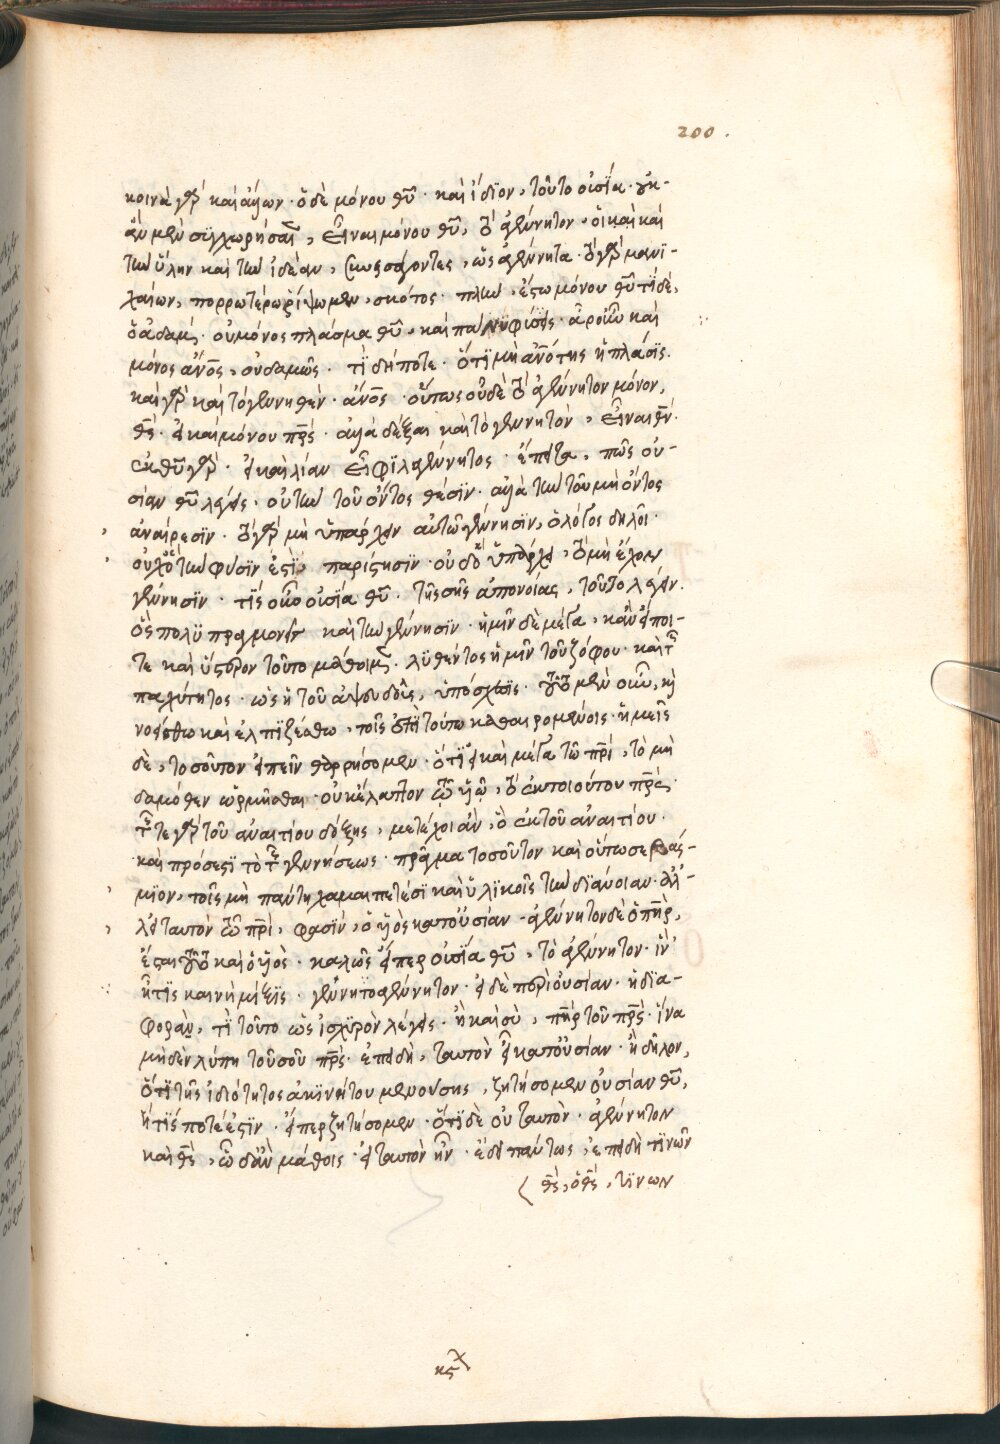 κοινὰ γὰρ καὶ ἄλλων· ὃ δὲ μόνου θῦ· καὶ ἴδϊον, τοῦτο οὐσΐα· οὐκ-
ἂν μὲν συγχωρήσαιεν, εἶναι μόνου θῦ, τὸ ἀγέννητον· οἱ καὶ καὶ
τὴν ὕλην καὶ τὴν ἰδέαν, συνεισάγοντες, ὡς ἀγέννητα· τὸ γὰρ μανϊ-
χαίων, πορρωτέρω ῥίψωμεν, σκότος· πλὴν, ἔστω μόνου θῦ τί δὲ,
ὁ ἀδαμ· οὐ μόνος πλάσμα θῦ· ναὶ φήσεις· ἆρ οὖν καὶ
μόνος ἄνος, οὐδαμῶς· τί δήποτε· ὅτϊ μὴ ἀνότης ἡ πλάσϊς·
καὶ γὰρ καὶ τὸ γεννηθὲν· ἄνος· οὕτως οὐδὲ τὸ ἀγέννητον μόνον,
θς· εἰ καὶ μόνου πρς· ἀλλὰ δέξαι καὶ τὸ γεννητὸν, εἶναι θν·
ἐκ θῦ γὰρ· εἰ καὶ λίαν εἶ φϊλαγέννητος· ἔπειτα, πῶς οὐ-
σίαν θῦ λέγεις· οὐ τὴν τοῦ ὄντος θέσϊν· ἀλλὰ τὴν τοῦ μὴ ὄντος
ἀναίρεσϊν· τὸ γὰρ μὴ ὑπάρχειν αὐτῶ γέννησϊν, ὁ λόγος δηλοῖ·
οὐχ ὃ τὴν φύσϊν ἐστϊ, παρίστησϊν· οὐδ' ὃ ὑπάρχει, τὸ μὴ ἔχον
γέννησϊν· τίς οὖν οὐσία θῦ· τῆς σῆς ἀπονοίας, τοῦτο λέγειν·
ὃς πολϋπραγμονεῖς καὶ τὴν γέννησϊν· ἡμῖν δὲ μέγα, κἂν εἴποτε-
τε καὶ ὕστερον τοῦτο μάθοιμεν· λϋθέντος ἡμῖν τοῦ ζόφου· καὶ τῆς
παχύτητος· ὡς ἡ τοῦ ἀψευδοῦς, ὑπόσχεσϊς· τοῦτο μὲν οὖν, καὶ
νοείσθω καὶ ἐλπϊζέσθω, τοῖς ἐπὶ τούτω καθαιρομένοις· ἡμεῖς
δὲ, τοσοῦτον εἰπεῖν θαρρήσομεν· ὅτϊ εἰ καὶ μέγα τῶ πρὶ, τὸ μη
δαμόθεν ὡρμῆσθαι· οὐκ ἔλαττον τῶ υἱῶ, τὸ ἐκ τοιούτου πρς·
τῆς τε γὰρ τοῦ ἀναιτίου δόξης, μετέχοι ἀν, ὃ ἐκ τοῦ ἀναιτίου·
καὶ πρόσεστϊ τὸ τῆς γεννήσεως· πρᾶγμα τοσοῦτον καὶ οὕτω σεβάσ-
μϊον, τοῖς μὴ πάντη χαμαιπετέσϊ καὶ ὑλϊκοῖς τὴν δϊάνοιαν· ἀλλ'
εἰ ταυτὸν τῶ πρὶ, φασϊν, ὁ υἱὸς κατ' οὐσίαν· ἀγέννητον δὲ ὁ πὴρ,
ἔσται τοῦτο καὶ ὁ υἱὸς· καλῶς εἴπερ οὐσΐα θῦ, τὸ ἀγέννητον· ἵν'
ἦ τϊς καινὴ μίξϊς· γεννητοαγέννητον· εἰ δὲ περὶ οὐσίαν· ἡ δϊα-
φορὰ, τί τοῦτο ὡς ἰσχϋρὸν λέγεις· ἢ καὶ σὺ, πὴρ τοῦ πρς· ἵνα
μηδὲν λϋπη τοῦ σοῦ πρς· ἐπειδὴ, ταυτὸν εἶ κατ' οὐσίαν· ἢ δῆλον,
ὅτϊ τῆς ἰδιότητος ἀκϊνήτου μενούσης, ζητήσομεν οὐσίαν θῦ,
ἥτϊς ποτέ ἐστϊν· εἴπερ ζητήσομεν· ὅτϊ δὲ οὐ ταυτὸν· ἀγέννητον
καὶ θς, ὧδ' ἂν μάθοις· εἰ ταυτὸν ἦν· ἔδει πάντως, ἐπειδὴ τϊνῶν
θς, ὁ θς, τϊνων
κς
200.